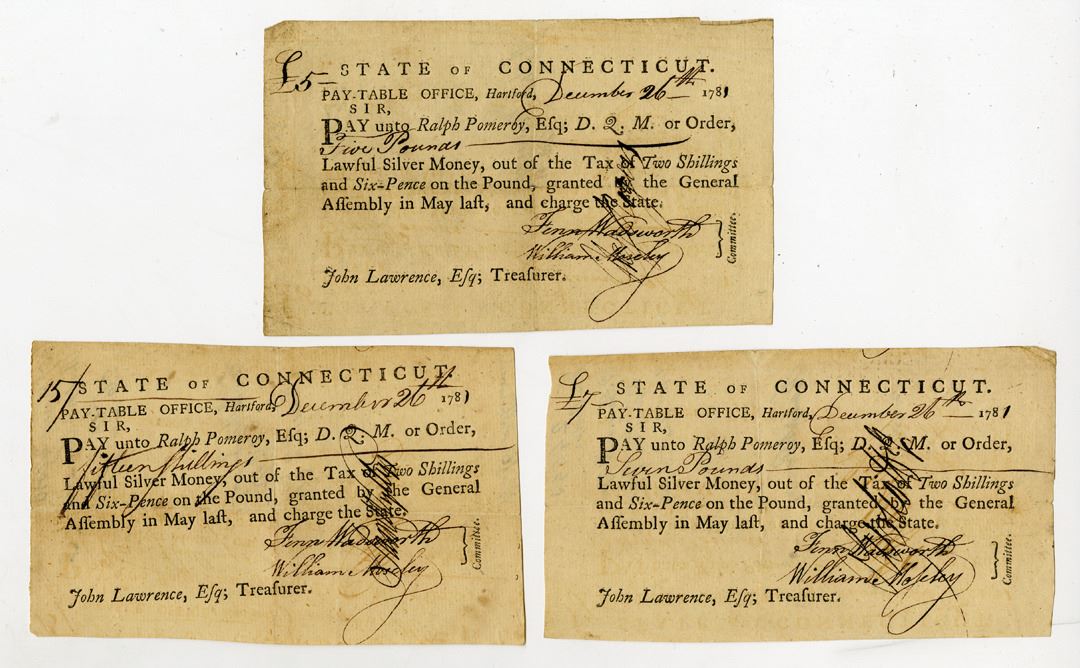 £5 STATE OF CONNECTICUT.
PAY-TABLE OFFICE, Hartford, December 26th 1781
SIR,
PAY unto Ralph Pomeroy, Eſq; D. Q. M. or Order,
Five Pounds
Lawful Silver Money, out of the Tax of Two Shillings
and Six-Pence on the Pound, granted by the General
Aſſembly in May laſt, and charge the State.
Fenn Wadsworth
William Moseley
Committee.
John Lawrence, Eſq; Treaſurer.
15/ STATE OF CONNECTICUT.
PAY-TABLE OFFICE, Hartford, December 26th 1781
SIR,
PAY unto Ralph Pomeroy, Eſq; D. Q. M. or Order,
fifteen Shillings
Lawful Silver Money, out of the Tax of Two Shillings
and Six-Pence on the Pound, granted by the General
Aſſembly in May laſt, and charge the State.
Fenn Wadsworth
William Moseley
Committee.
John Lawrence, Eſq; Treaſurer.
£7 STATE OF CONNECTICUT.
PAY-TABLE OFFICE, Hartford, December 26th 1781
SIR,
PAY unto Ralph Pomeroy, Eſq; D. Q. M. or Order,
Seven Pounds
Lawful Silver Money, out of the Tax of Two Shillings
and Six-Pence on the Pound, granted by the General
Aſſembly in May laſt, and charge the State.
Fenn Wadsworth
William Moseley
Committee.
John Lawrence, Eſq; Treaſurer.